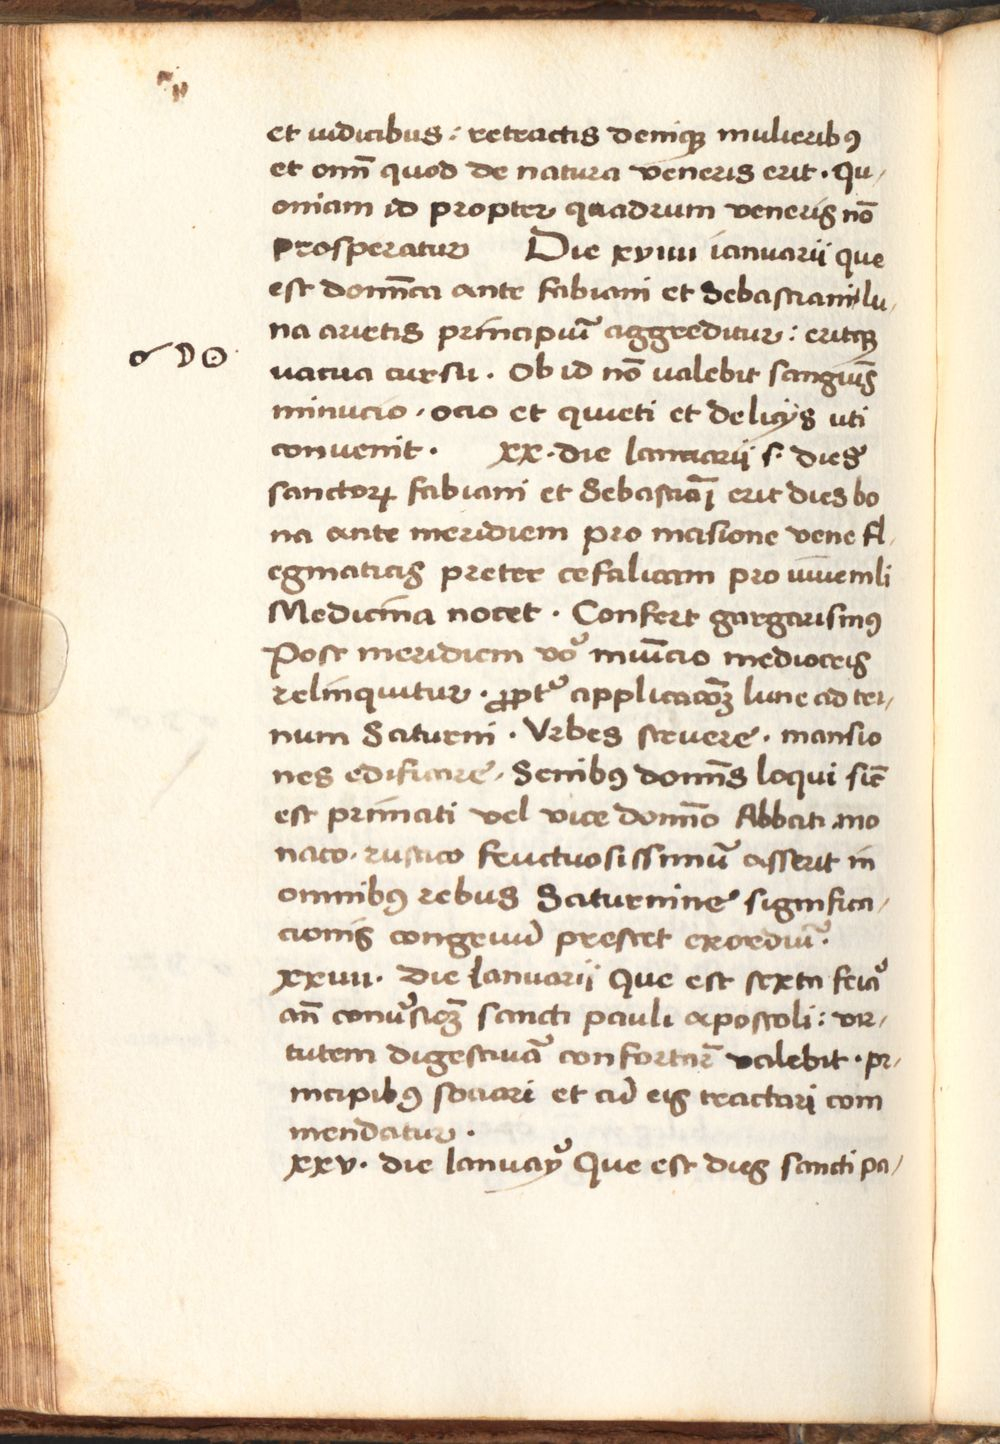 et iudicibus : retractis deniqꝫ mulieribꝰ
et om̅ quod de natura veneris erit · Qu/
oniam id propter quadrum veneris no̅
Prosperatur Die xviiii ianuarii que
est domi̅ca ante fabiani et Sebastiani lu/
na arietis principiu̅ aggreditur : eritqꝫ
♂ ☽ ☉
vacua cursu · Ob id no̅ valebit sangui̅s
minucio · ocio et quieti et delicijs uti
convenit · XX · die Ianuarii s· dies
sanctoꝝ fabiani et Sebastia̅i erit dies bo
na ante meridiem pro incisione vene fl/
egmaticis preter cefalicam pro iuvenili
Medicina nocet · Confert gargarismꝰ
Post meridiem vo᷒ minu̅cio mediocris
relinquitur · ꝓpt᷒ applicaco̅ꝫ lune ad ter/
num Saturni · Urbes struere · mansio
nes edificare · Senibꝰ domi̅s loqui sic̅
est primati vel vice domi̅o Abbati mo
naco · rustico fructuosissimu̅ asserit in
omnibꝰ rebus Saturnine significa/
cionis congruu̅ prestet exordiu̅ ·
XXIIII · die Ianuarii Que est sexta feia᷒
an̅ conu᷒sio̅ꝫ sancti pauli apostoli : vir/
tutem digestiva̅ confortar̅ valebit · pr/
incipibꝰ sociari et cu̅ eis tractari com
mendatur ·
XXV · die Ianuarij Que est dies sancti pa/